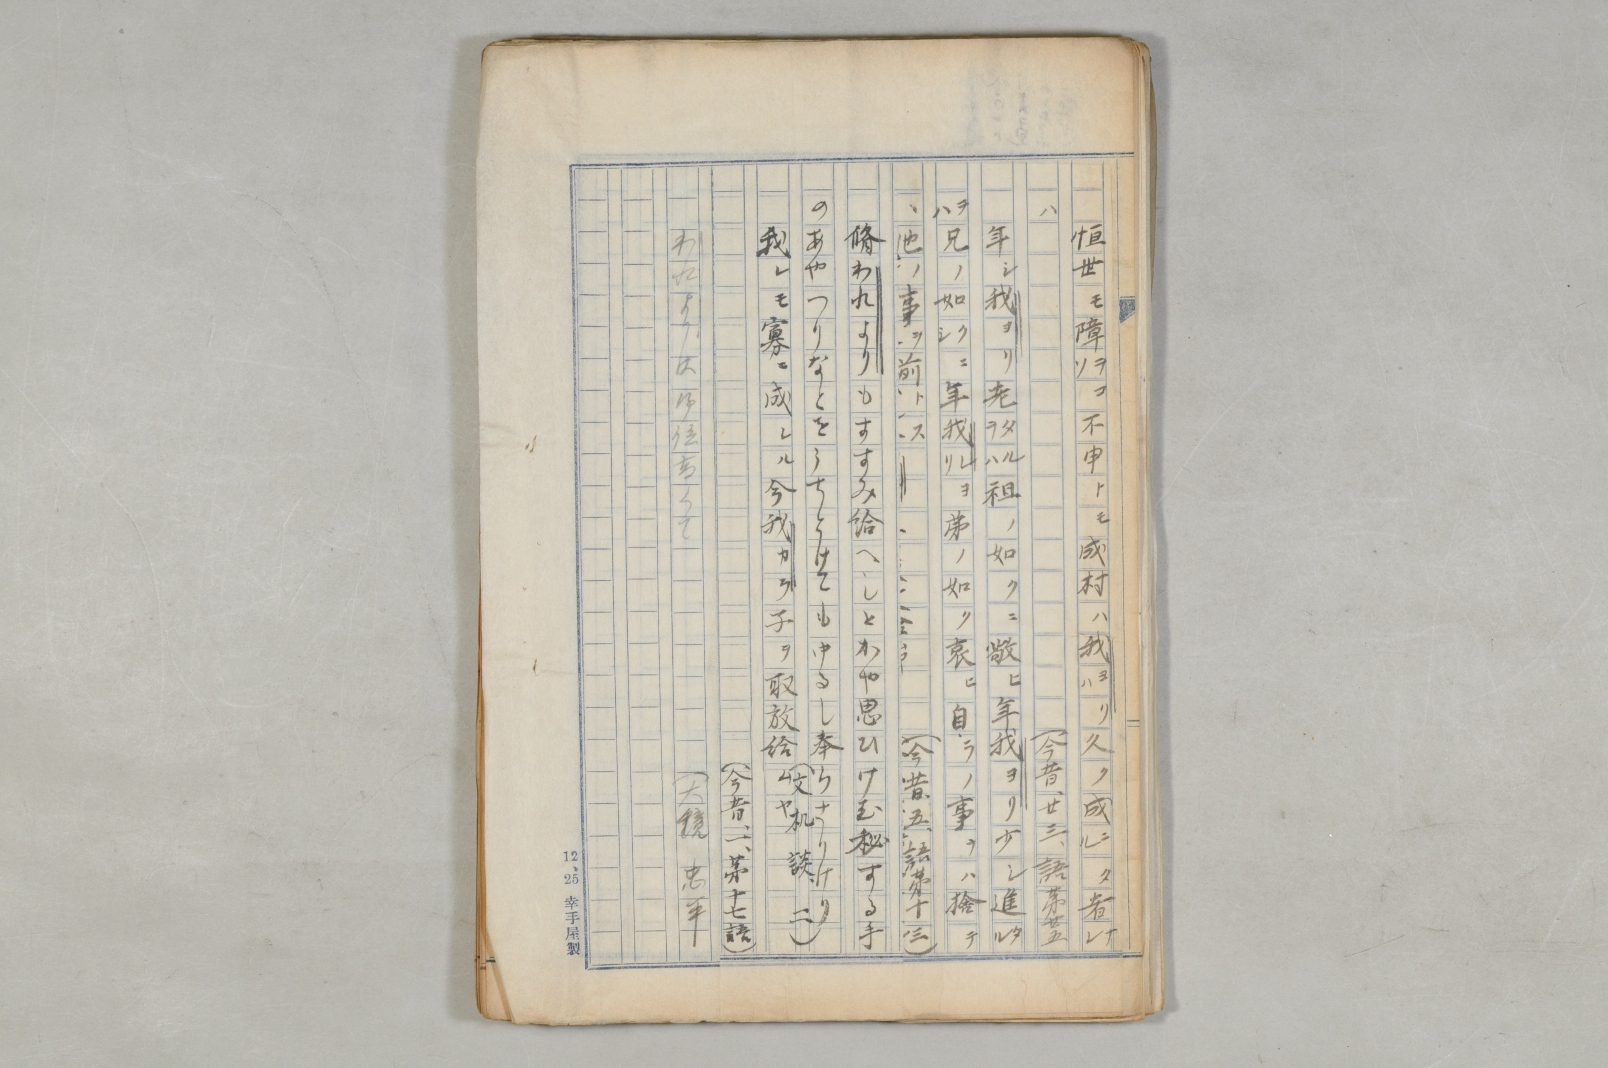 恒世モ障リヲコソ不申トモ成村ハ我ヨリハ久ク成ニタル者ナレ
ハ（今昔、廿三、語第廿五
年シ我ヨリ老タラハル祖ノ如クニ敬ヒ年我ヨリ少シ進タル
ヲハ兄ノ如クシニ年我レリヨ弟ノ如ク哀ヒ自ラノ事ヲハ捨テ
、他ノ事ヲ前トス（今昔、五、語第十三）
脩われよりもすすみ給へしとかや思ひけむ秘する手
のあやつりなとをうちとけてもゆるし奉らさりけり（文机談、二）
我レモ寡ニ成レル今我カラ子ヲ取放給ムヤ
（今昔、二、第十七語）
われよりは御位高くて
（大鏡 忠平
12、25 幸手屋製